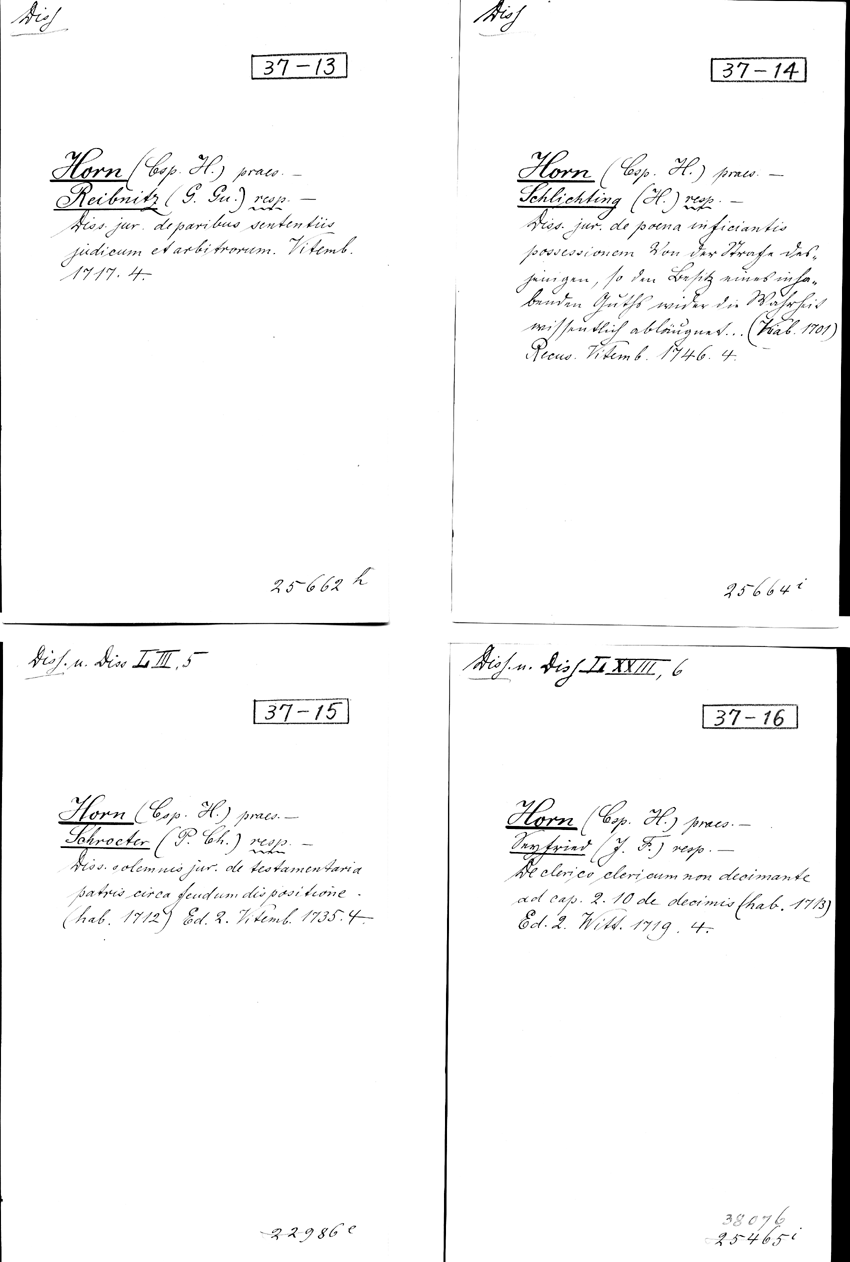 Diss
37-13
Horn (Csp. H.) praes. —
Reibnitz (G. Gu.) resp. —
Diss. jur. de paribus sententiis
judicum et arbitrorum. Vitemb.
1717. 4.
25662 h
Diss
37-14
Horn (Csp. H.) praes. —
Schlichting (H.) resp. —
Diss. jur. de poena inficiantis
possessionem Von der Strafe des-
jenigen, so den Besitz eines inha-
benden Guths wider die Wahrheit
wissentlich abläugnet... (hab. 1701)
Recus. Vitemb. 1746. 4.
25664 i
Diss. u. Diss L III, 5
37-15
Horn (Csp. H.) praes. —
Schroeter (P. Ch.) resp. —
Diss. solemnis jur. de testamentaria
patris circa feudum dispositione.
(hab. 1712) Ed. 2. Vitemb. 1735. 4.
22986 e
Diss. u. Diss L XXIII, 6
37-16
Horn (Csp. H.) praes. —
Seyfried (J. F.) resp. —
De clerico clericum non decimante
ad cap. 2. 10 de decimis (hab. 1713)
Ed. 2. Witt. 1719. 4.
38076
25465 i